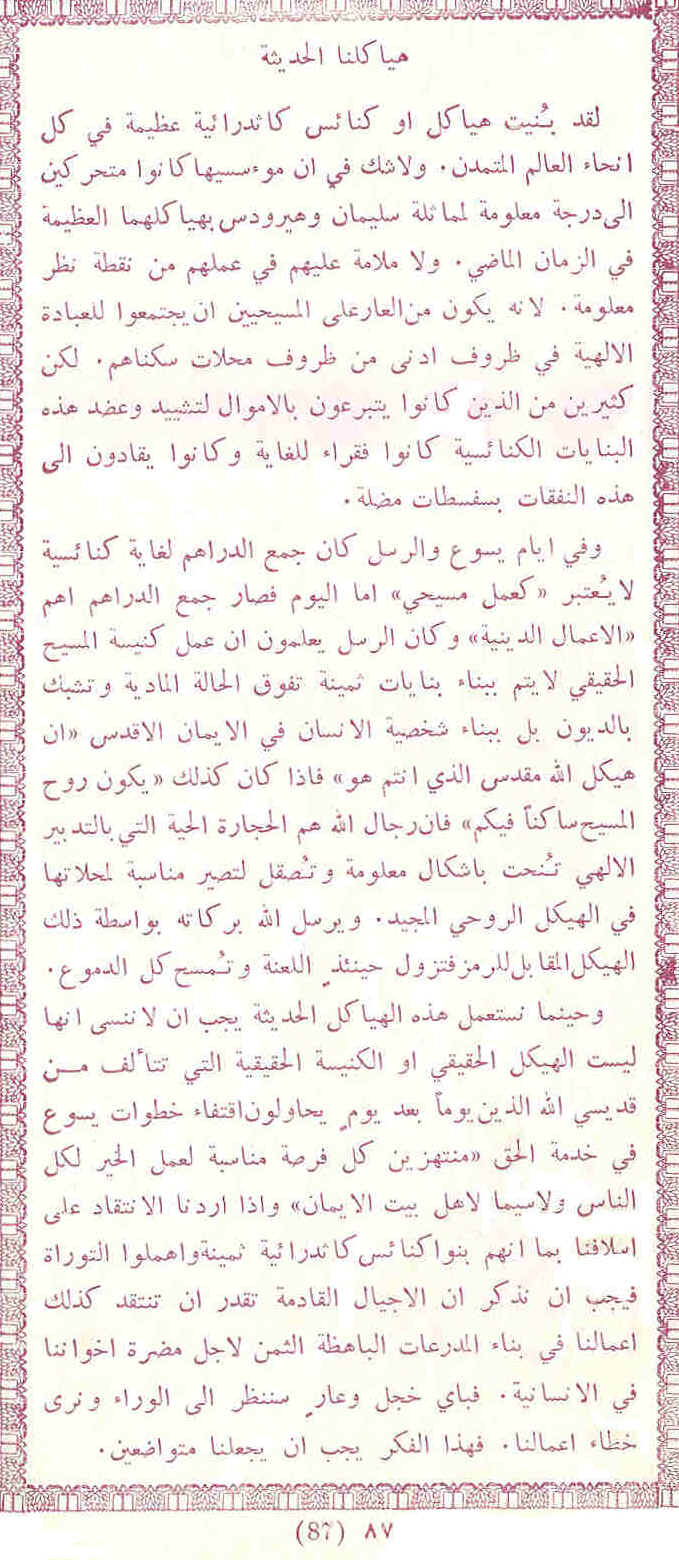 هياكلنا الحديثة
لقد بُنيت هياكل او كنائس كاثدرائية عظيمة في كل
انحاء العالم المتمدن. ولاشك في ان موءسسيها كانوا متحركين
الى درجة معلومة لمماثلة سليمان وهيرودس بهياكلهما العظيمة
في الزمان الماضي. ولا ملامة عليهم في عملهم من نقطة نظر
معلومة. لانه يكون من العار على المسيحيين ان يجتمعوا للعبادة
الالهية في ظروف ادنى من ظروف محلات سكناهم. لكن
كثيرين من الذين كانوا يتبرعون بالاموال لتشييد وعضد هذه
البنايات الكنائسية كانوا فقراء للغاية وكانوا يقادون الى
هذه النفقات بسفسطات مضلة.
وفي ايام يسوع والرسل كان جمع الدراهم لغاية كنائسية
لا يُعتبر «كعمل مسيحي» اما اليوم فصار جمع الدراهم اهم
«الاعمال الدينية» وكان الرسل يعلمون ان عمل كنيسة المسيح
الحقيقي لا يتم ببناء بنايات ثمينة تفوق الحالة المادية وتشبك
بالديون بل ببناء شخصية الانسان في الايمان الاقدس «ان
هيكل الله مقدس الذي انتم هو» فاذا كان كذلك «يكون روح
المسيح ساكناً فيكم» فان رجال الله هم الحجارة الحية التي بالتدبير
الالهي تُنحت باشكال معلومة وتُصقل لتصير مناسبة لمحلاتها
في الهيكل الروحي المجيد. ويرسل الله بركاته بواسطة ذلك
الهيكل المقابل للرمز فتزول حينئذٍ اللعنة وتُمسح كل الدموع.
وحينما نستعمل هذه الهياكل الحديثة يجب ان لا ننسى انها
ليست الهيكل الحقيقي او الكنيسة الحقيقية التي تتألف مــن
قديسي الله الذين يوماً بعد يومٍ يحاولون اقتفاء خطوات يسوع
في خدمة الحق «منتهزين كل فرصة مناسبة لعمل الخير لكل
الناس ولاسيما لاهل بيت الايمان» واذا اردنا الانتقاد على
اسلافنا بما انهم بنوا كنائس كاثدرائية ثمينة واهملوا التوراة
فيجب ان نذكر ان الاجيال القادمة تقدر ان تنتقد كذلك
اعمالنا في بناء المدرعات الباهظة الثمن لاجل مضرة اخواننا
في الانسانية. فباي خجل وعارٍ سننظر الى الوراء ونرى
خطاء اعمالنا. فهذا الفكر يجب ان يجعلنا متواضعين.
٨٧ (87)